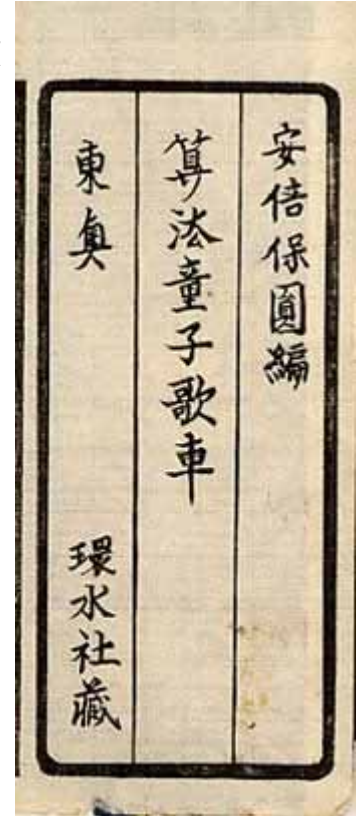 安倍保圓編
算法童子歌車
東奥　環水社藏